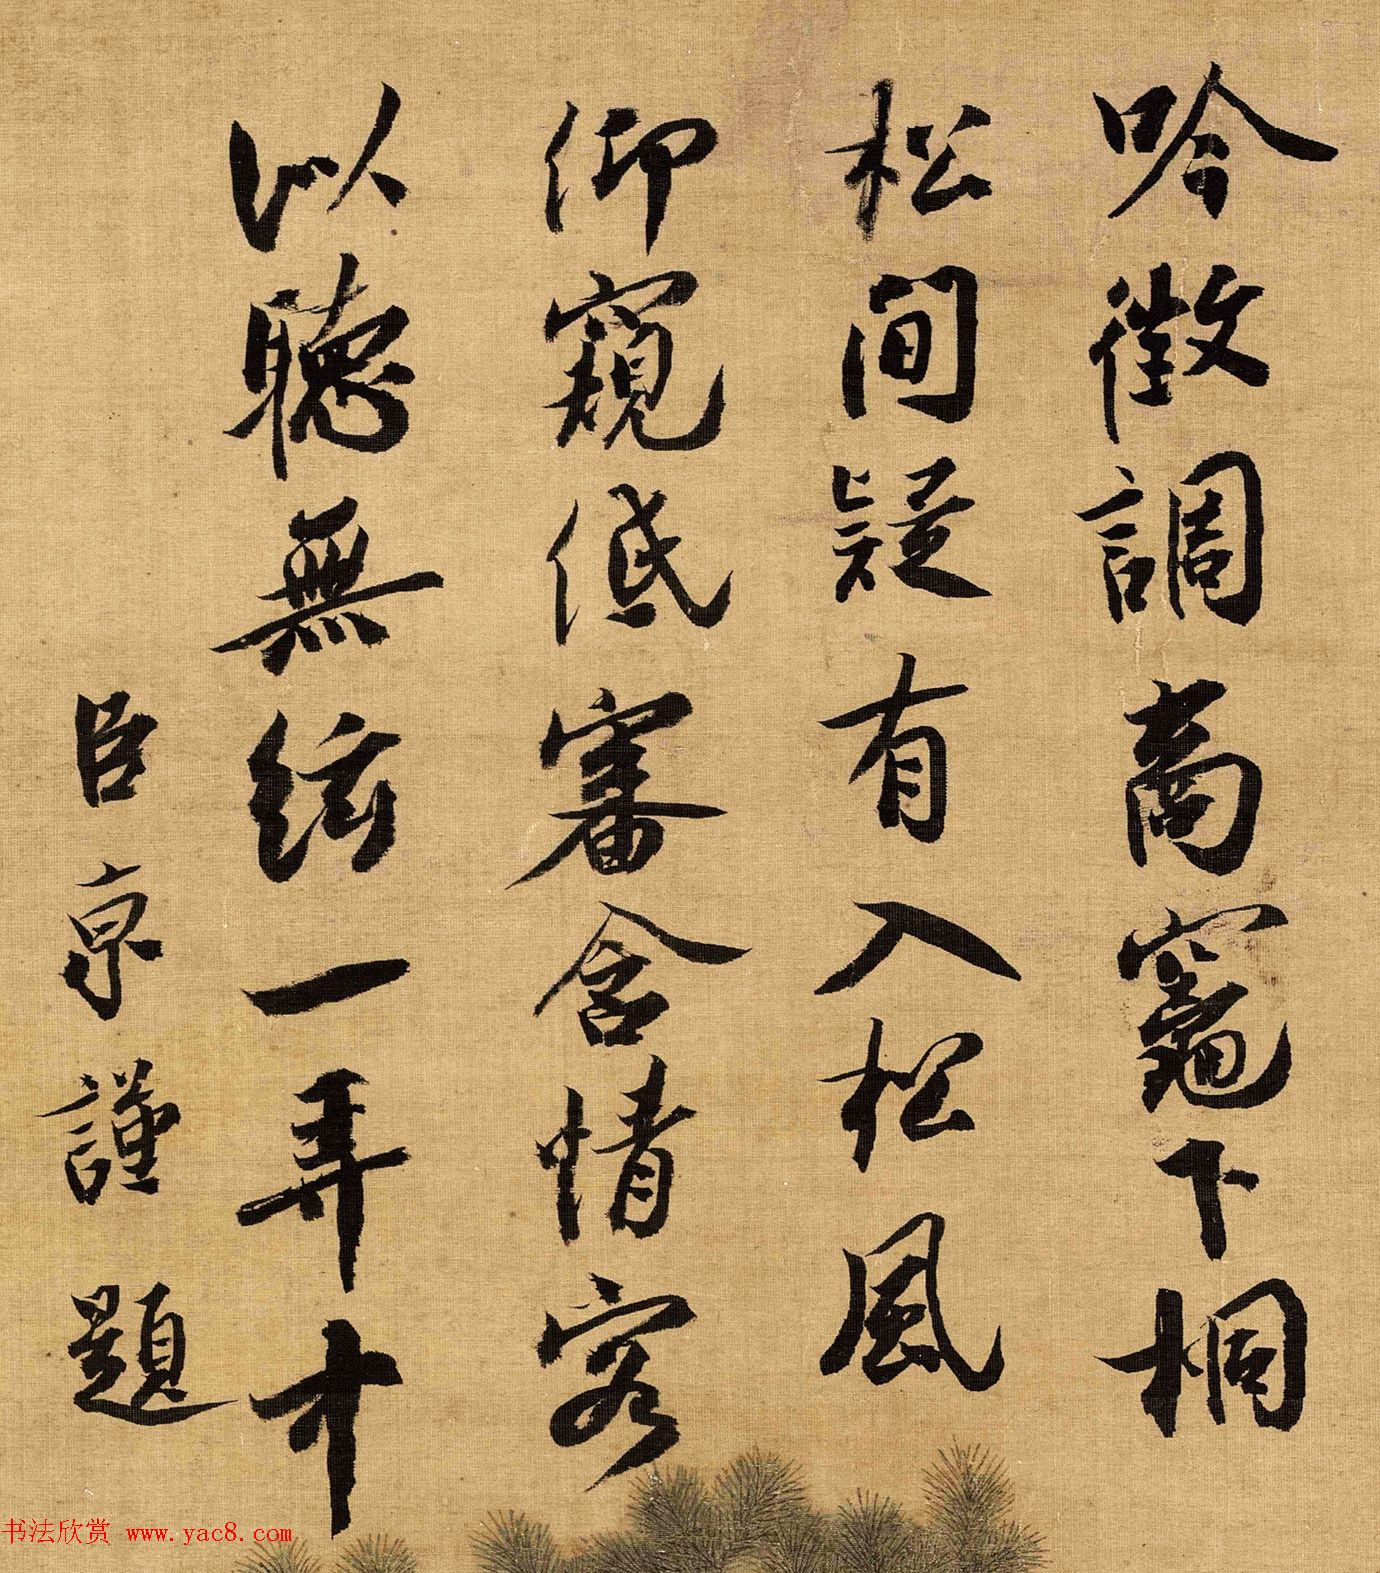 吟徵調商竈下桐
松間疑有入松風
仰窺低審含情客
以聽無絃一弄中
臣京謹題
书法欣赏 www.yac8.com